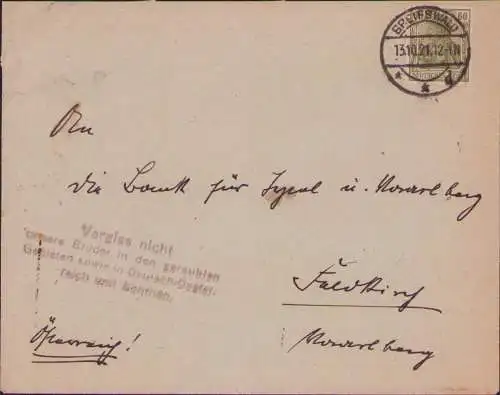 60
GREIFSWALD
13.10.21.12-1N
* * d
An
die Bank für Tyrol u. Vorarlberg
Vergiss nicht
unsere Brüder in den geraubten
Gebieten sowie in Deutsch-Öster-
reich und Böhmen.
Feldkirch
Österreich!
Vorarlberg